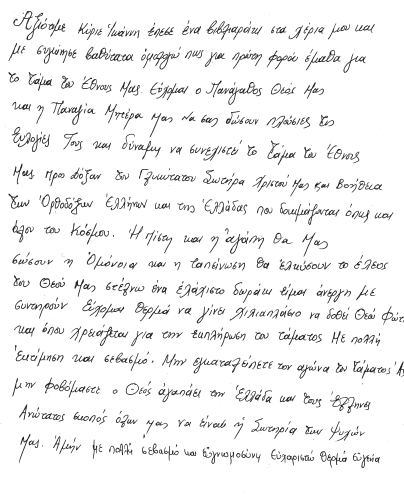 Αξιότιμε Κύριε Ιωάννη έπεσε ένα βιβλιαράκι στα χέρια μου και
με συγκίνησε βαθύτατα ομολογώ πως για πρώτη φορά έμαθα για
το τάμα του Έθνους Μας. Εύχομαι ο Πανάγαθος Θεός Μας
και η Παναγία Μητέρα Μας Να σας δώσουν πλούσιες τις
Ευλογίες Τους και δύναμη να συνεχιστεί το Τάμα του Έθνους
Μας προς δόξαν του Γλυκύτατου Σωτήρα Χριστού Μας και Βοήθεια
των Ορθοδόξων Ελλήνων και της Ελλάδας που δοκιμάζονται όπως και
όλου του Κόσμου. Ή Πίστη και η αγάπη θα Μας
σώσουν η Ομόνοια και η ταπείνωση θα ελκύσουν το έλεος
του Θεού Μας στέλνω ένα ελάχιστο δωράκι είμαι άνεργη με
συντηρούν Εύχομαι Θερμά να γίνει χιλιαπλάσιο να δοθεί Θεού Φώτ
και όπου χρειάζεται για την εκπλήρωση του τάματος Με πολλή
εκτίμηση και σεβασμό. Μην εγκαταλείπετε τον αγώνα του τάματος
μην φοβόμαστε ο Θεός αγαπάει την Ελλάδα και τους Έλληνες
Ανώτατος σκοπός όλων μας να είναι ή Σωτηρία των ψυχών
Μας. Αμήν με πολλή σεβασμό και ευγνωμοσύνη Ευχαριστώ θερμά Ευγενία